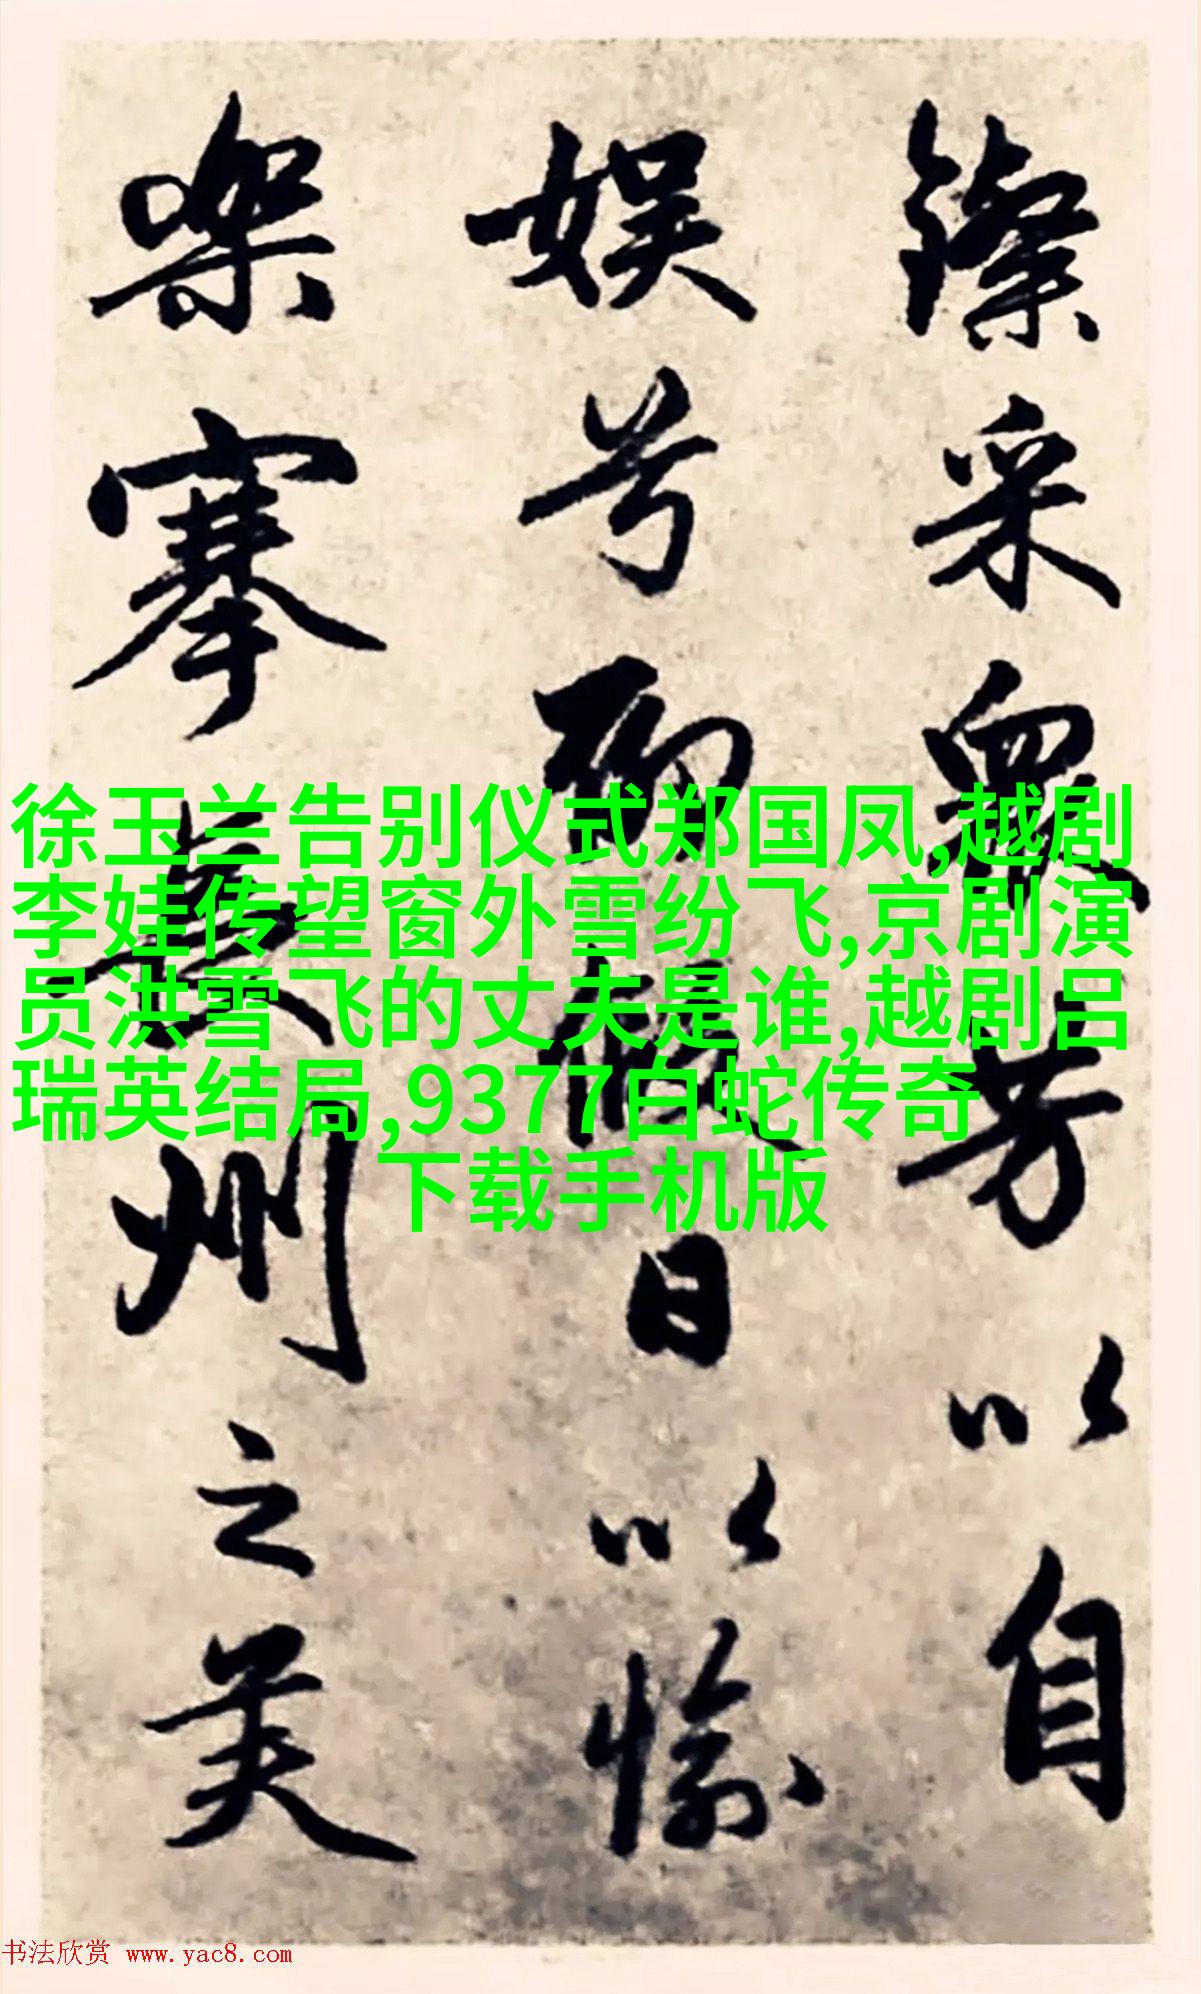 鑗采眾芳以自
娱兮聊假日以愉
樂搴長州之芙
徐玉兰告别仪式郑国凤,越剧
李娃传望窗外雪纷飞,京剧演
员洪雪飞的丈夫是谁,越剧吕
瑞英结局,9377白蛇传奇
下载手机版
书法欣赏 www.yac8.com